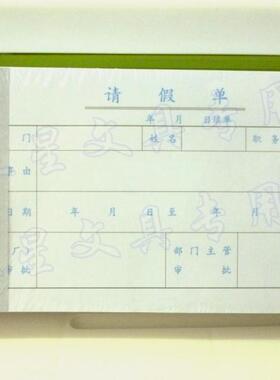 请 假 单
年 月 日填单
门 姓名 职务
事由
日期 年 月 日 至 年 月
厂 部门主管
审批 审 批
星文具专用
星文具专用